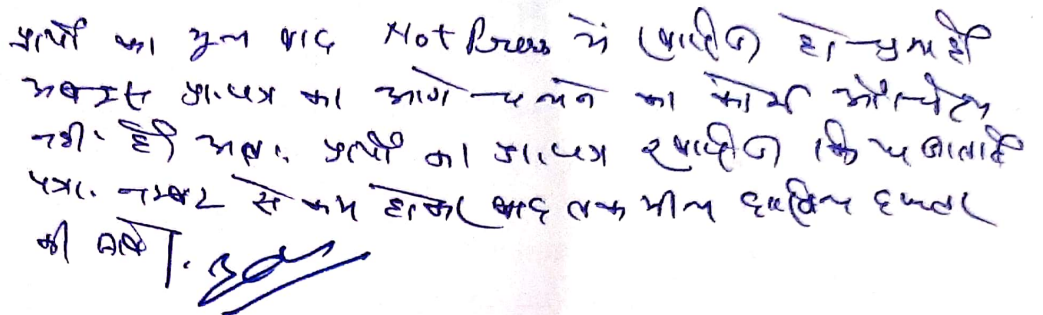 प्रार्थी का मूल वाद Not Press में खारिज हो चुका है
अब इस प्रा.पत्र को आगे चलाने का कोई औचित्य
नहीं है। अतः प्रार्थी का प्रा.पत्र खारिज किया जाता है
पत्रा. नम्बर से कम होकर बाद तकमील दाखिल दफ्तर
की जावे।